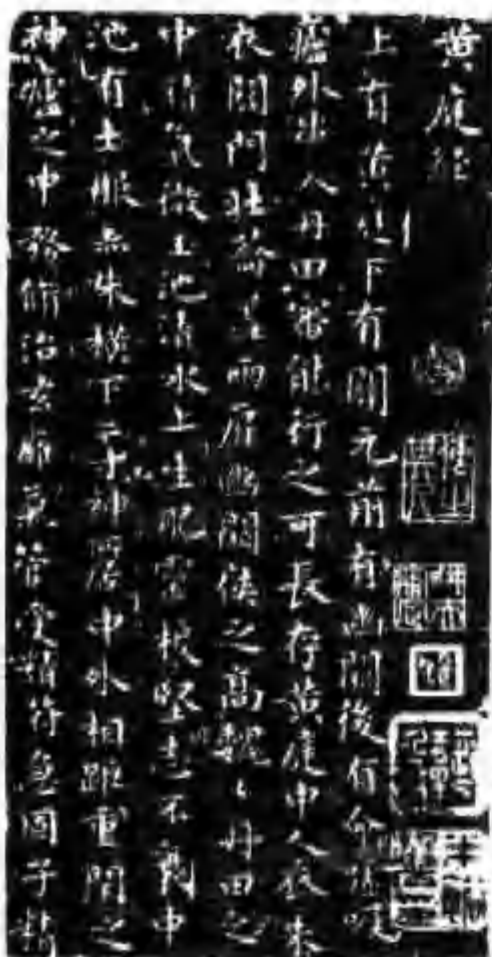 黄庭經
上有黄庭下有關元前有幽關後有命門噓吸
廬外出入丹田審能行之可長存黄庭中人衣朱
衣關門壯籥蓋兩扉幽關俠之高巍巍丹田之
中精氣微玉池清水上生肥靈根堅志不衰中
池有士服赤朱橫下三寸神所居中外相距重閉之
神廬之中務脩治玄膺氣管受精符急固子精